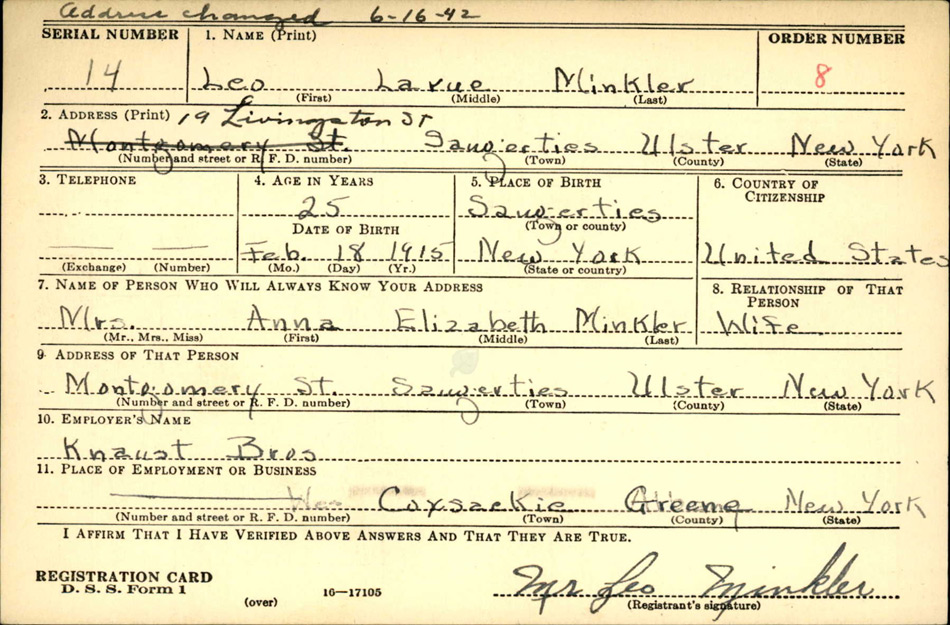 Address changed 6-16-42
SERIAL NUMBER 1. NAME (Print) ORDER NUMBER
14 Leo Larue Minkler 8
(First) (Middle) (Last)
2. ADDRESS (Print) 19 Livingston St
Montgomery St. Saugerties Ulster New York
(Number and street or R. F. D. number) (Town) (County) (State)
3. TELEPHONE 4. AGE IN YEARS 5. PLACE OF BIRTH 6. COUNTRY OF CITIZENSHIP
25 Saugerties
DATE OF BIRTH (Town or county)
Feb. 18 1915 New York United States
(Exchange) (Number) (Mo.) (Day) (Yr.) (State or country)
7. NAME OF PERSON WHO WILL ALWAYS KNOW YOUR ADDRESS 8. RELATIONSHIP OF THAT PERSON
Mrs. Anna Elizabeth Minkler Wife
(Mr., Mrs., Miss) (First) (Middle) (Last)
9. ADDRESS OF THAT PERSON
Montgomery St. Saugerties Ulster New York
(Number and street or R. F. D. number) (Town) (County) (State)
10. EMPLOYER'S NAME
Knaust Bros
11. PLACE OF EMPLOYMENT OR BUSINESS
Coxsackie Greene New York
(Number and street or R. F. D. number) (Town) (County) (State)
I AFFIRM THAT I HAVE VERIFIED ABOVE ANSWERS AND THAT THEY ARE TRUE.
REGISTRATION CARD
D. S. S. Form 1 16-17105 Mr Leo Minkler
(over) (Registrant's signature)